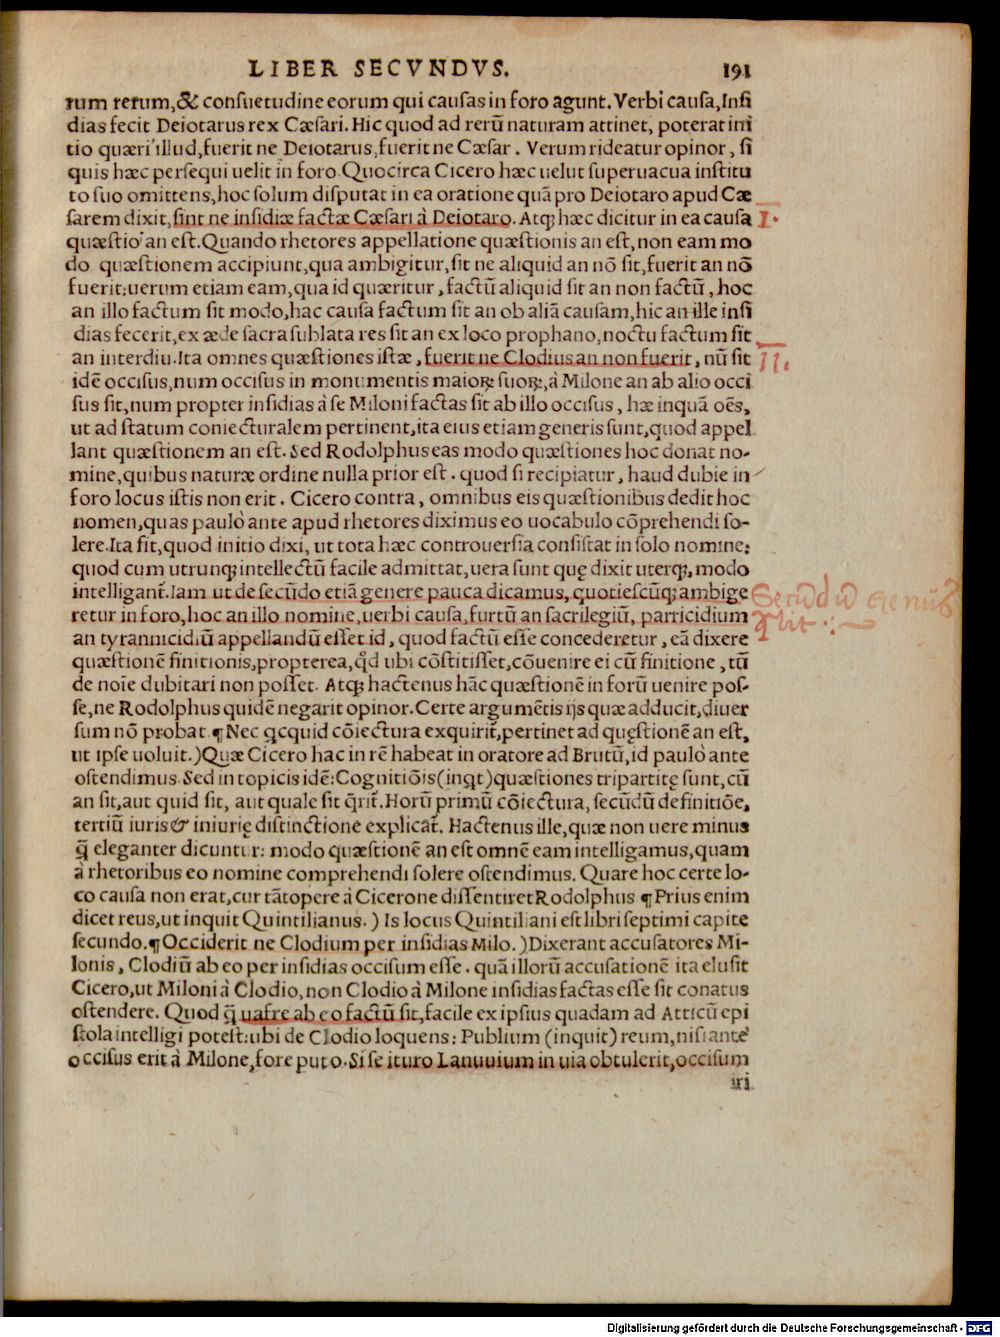 LIBER SECVNDVS. 191
rum rerum,& consuetudine eorum qui causas in foro agunt. Verbi causa,Insi
dias fecit Deiotarus rex Cæsari. Hic quod ad rerũ naturam attinet, poterat ini
tio quæri illud,fuerit ne Deiotarus,fuerit ne Cæsar. Verum rideatur opinor, si
quis hæc persequi uelit in foro. Quocirca Cicero hæc uelut superuacua institu
to suo omittens,hoc solum disputat in ea oratione quã pro Deiotaro apud Cæ
sarem dixit,sint ne insidiæ factæ Cæsari à Deiotaro. Atq; hæc dicitur in ea causa I.
quæstio an est.Quando rhetores appellatione quæstionis an est,non eam mo
do quæstionem accipiunt,qua ambigitur,sit ne aliquid an nõ sit,fuerit an nõ
fuerit:uerum etiam eam,qua id quæritur,factũ aliquid sit an non factũ,hoc
an illo factum sit modo,hac causa factum sit an ob aliã causam,hic an ille insi
dias fecerit,ex æde sacra sublata res sit an ex loco prophano,noctu factum sit
an interdiu.Ita omnes quæstiones istæ,fuerit ne Clodius an non fuerit,nũ sit II.
idẽ occisus,num occisus in monumentis maioꝝ suoꝝ,à Milone an ab alio occi
sus sit,num propter insidias à se Miloni factas sit ab illo occisus, hæ inquã oẽs,
ut ad statum coniecturalem pertinent,ita eius etiam generis sunt,quod appel
lant quæstionem an est. Sed Rodolphus eas modo quæstiones hoc donat no-
mine,quibus naturæ ordine nulla prior est. quod si recipiatur, haud dubie in
foro locus istis non erit. Cicero contra, omnibus eis quæstionibus dedit hoc
nomen,quas paulò ante apud rhetores diximus eo uocabulo cõprehendi so-
lere.Ita fit,quod initio dixi, ut tota hæc controuersia consistat in solo nomine:
quod cum utrunq; intellectũ facile admittat,uera sunt quę dixit uterq;,modo
intelligant̃.Iam ut de secũdo etiã genere pauca dicamus, quotiescũq; ambige Secũdũ genus
retur in foro,hoc an illo nomine,uerbi causa,furtũ an sacrilegiũ, parricidium
an tyrannicidiũ appellandũ esset id, quod factũ esse concederetur, eã dixere
quæstionẽ finitionis,propterea,q̃d ubi cõstitisset,cõuenire ei cũ finitione, tũ
de noĩe dubitari non posset. Atq; hactenus hãc quæstionẽ in forũ uenire pos-
se,ne Rodolphus quidẽ negarit opinor.Certe argumẽtis ijs quæ adducit,diuer
sum nõ probat ¶Nec qcquid cõiectura exquirit̃,pertinet ad quęstionẽ an est,
ut ipse uoluit.)Quæ Cicero hac in rẽ habeat in oratore ad Brutũ,id paulò ante
ostendimus.Sed in topicis idẽ:Cognitiõis(inqt)quæstiones tripartitę sunt,cũ
an sit,aut quid sit, aut quale sit q̃rit̃.Horũ primũ cõiectura, secũdũ definitiõe,
tertiũ iuris & iniurię distinctione explicat̃. Hactenus ille,quæ non uere minus
q̃ eleganter dicuntur: modo quæstionẽ an est omnẽ eam intelligamus,quam
à rhetoribus eo nomine comprehendi solere ostendimus. Quare hoc certe lo-
co causa non erat,cur tãtopere à Cicerone dissentiret Rodolphus ¶Prius enim
dicet reus,ut inquit Quintilianus.) Is locus Quintiliani est libri septimi capite
secundo.¶Occiderit ne Clodium per insidias Milo.)Dixerant accusatores Mi-
lonis, Clodiũ ab eo per insidias occisum esse. quã illorũ accusationẽ ita elusit
Cicero,ut Miloni à Clodio,non Clodio à Milone insidias factas esse sit conatus
ostendere. Quod q̃ uafre ab eo factũ sit,facile ex ipsius quadam ad Atticũ epi
stola intelligi potest:ubi de Clodio loquens: Publium (inquit)reum,nisi antè
occisus erit à Milone,fore puto.Si se ituro Lanuuium in uia obtulerit,occisum
iri
Digitalisierung gefördert durch die Deutsche Forschungsgemeinschaft - DFG